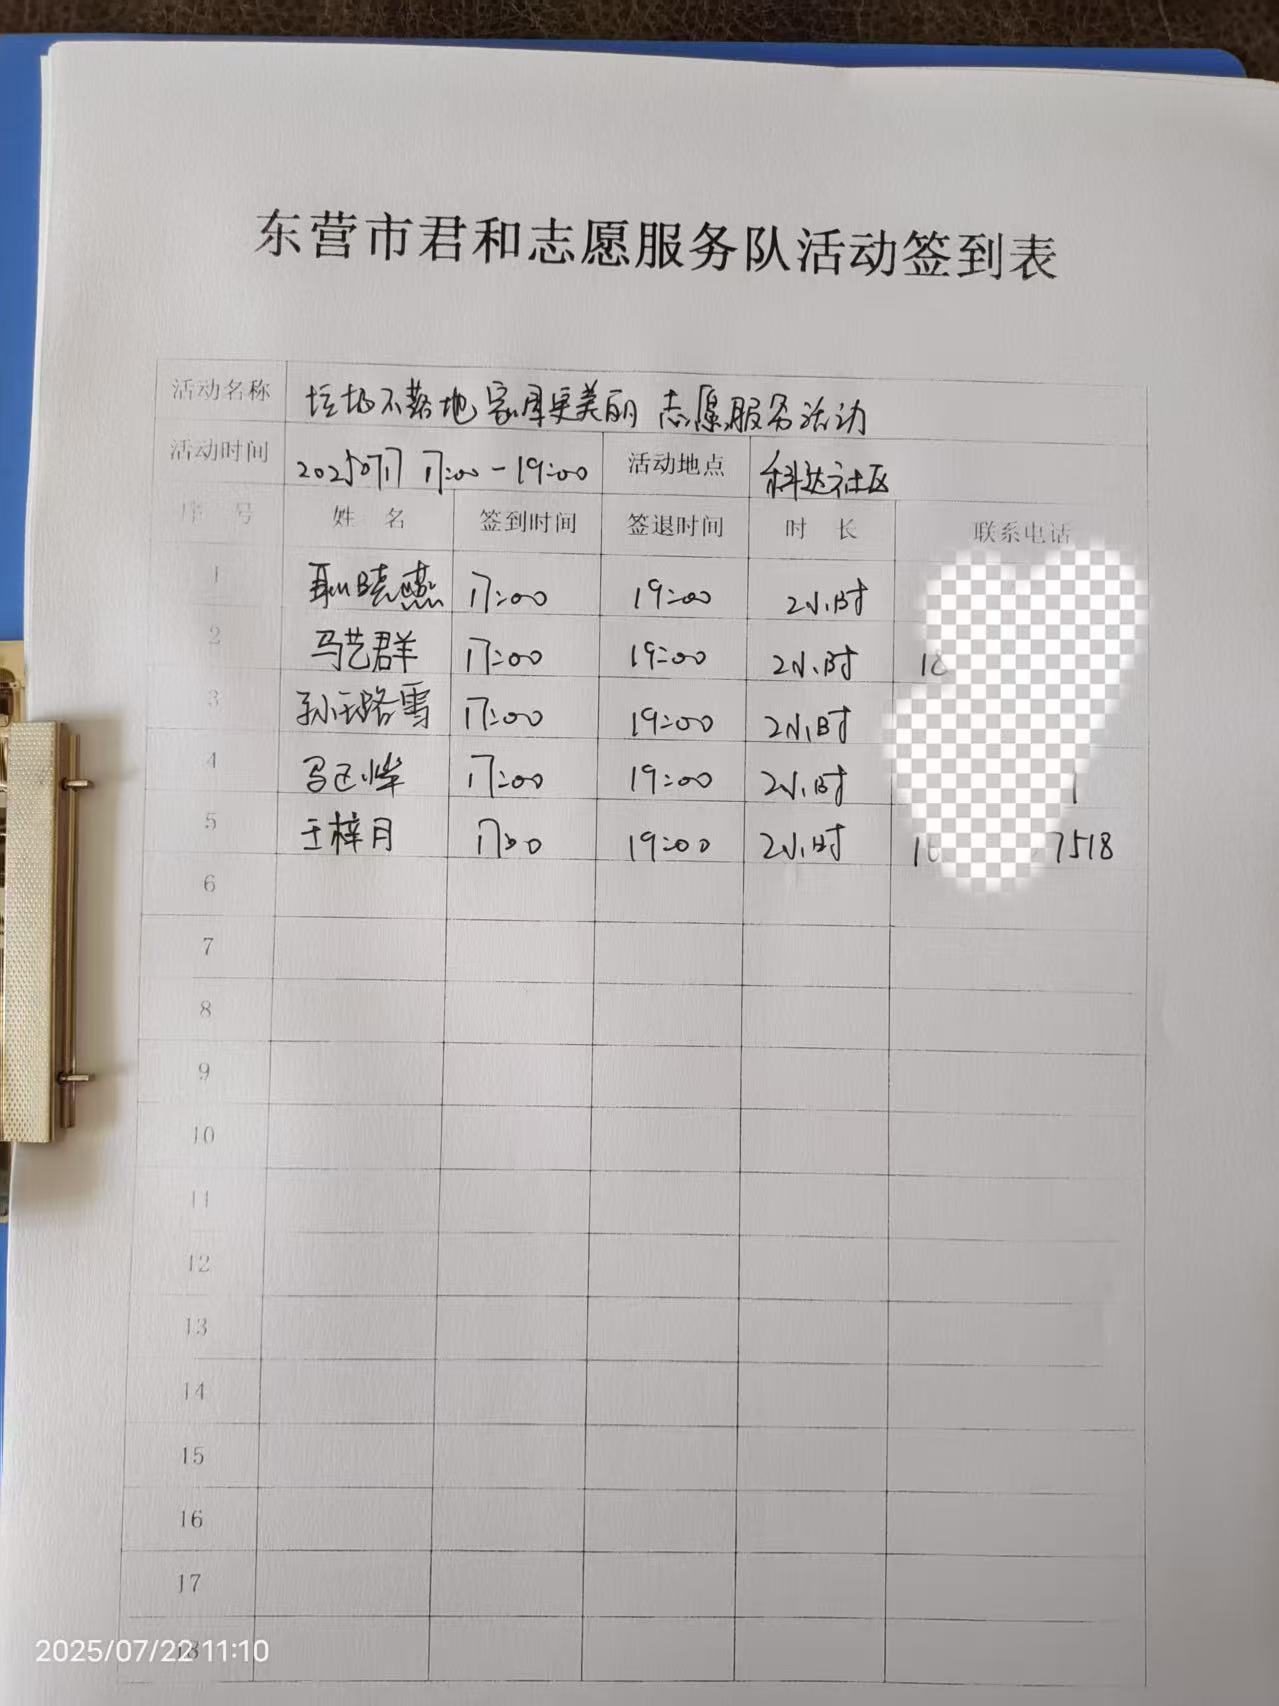 东营市君和志愿服务队活动签到表
活动名称 垃圾不落地 家园更美丽 志愿服务活动
活动时间 20250717 17:00-19:00 活动地点 科达社区
序 号 姓 名 签到时间 签退时间 时 长 联系电话
1 耿晓燕 17:00 19:00 2小时
2 马艺群 17:00 19:00 2小时 18
3 孙路雪 17:00 19:00 2小时
4 17:00 19:00 2小时 1
5 王梓月 17:00 19:00 2小时 7518
6
7
8
9
10
11
12
13
14
15
16
17
18
2025/07/22 11:10